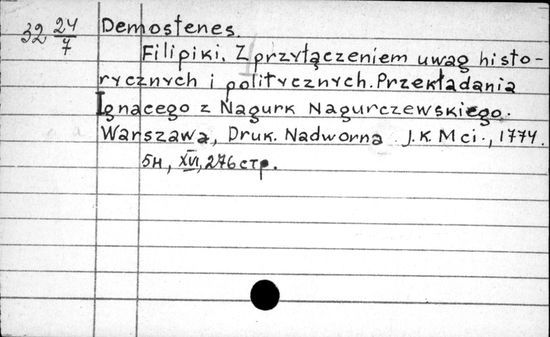 32 24/7 Demostenes.
Filipiki. Z przyłączeniem uwag histo-
rycznych i politycznych. Przekładania
Ignacego z Nagurk Nagurczewskiego.
Warszawa, Druk. Nadworna J. K. Mci., 1774.
5н, XVI, 276 стр.